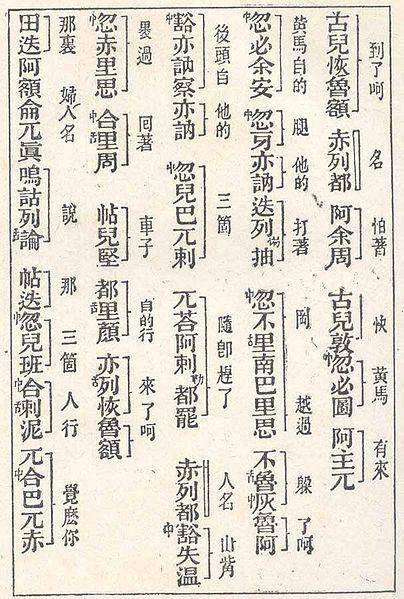 到了呵 名 怕著 快 黃馬 有來
古兒恢魯額 赤列都 阿余周 古兒敦中忽必圖 阿主兀
黃馬自的 腿 他的 打著 岡 越過 躱 了呵
中忽必余安 中忽牙亦訥 迭列抽 中忽不里南巴里思 不舌魯中灰 阿
後頭自 他的 三箇 隨卽趕了 人名 山觜
中豁亦訥察亦訥 中忽兒巴兀剌 兀荅阿剌勑都罷 赤列都 中豁失溫
過 回著 車子 自的行 來了呵
中忽赤里思 中合舌里周 帖兒堅 都舌里顏 亦舌列恢魯額
那裏 婦人名 說 那 三箇 人行 覺麽你
田迭阿額侖兀眞鳴詁列舌論 帖迭中忽兒班中合舌剌泥 兀中合巴兀赤